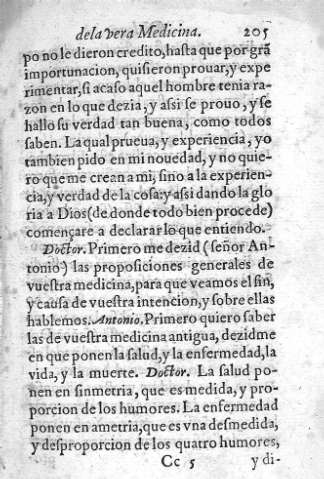 de la vera Medicina. 205
po no le dieron credito, hasta que por grã
importunacion, quisieron prouar, y expe
rimentar, si acaso aquel hombre tenia ra-
zon en lo que dezia, y assi se prouo, y se
hallo su verdad tan buena, como todos
saben. La qual prueua, y experiencia, yo
tambien pido en mi nouedad, y no quie-
ro que me crean a mi, sino a la experien-
cia, y verdad de la cosa: y assi dando la glo
ria a Dios (de donde todo bien procede)
començare a declarar lo que entiendo.
Doctor. Primero me dezid (señor An-
tonio) las proposiciones generales de
vuestra medicina, para que veamos el fin,
y causa de vuestra intencion, y sobre ellas
hablemos. Antonio. Primero quiero saber
las de vuestra medicina antigua, dezidme
en que ponen la salud, y la enfermedad, la
vida, y la muerte. Doctor. La salud po-
nen en sinmetria, que es medida, y pro-
porcion de los humores. La enfermedad
ponen en ametria, que es vna desmedida,
y desproporcion de los quatro humores,
Cc 5 y di-